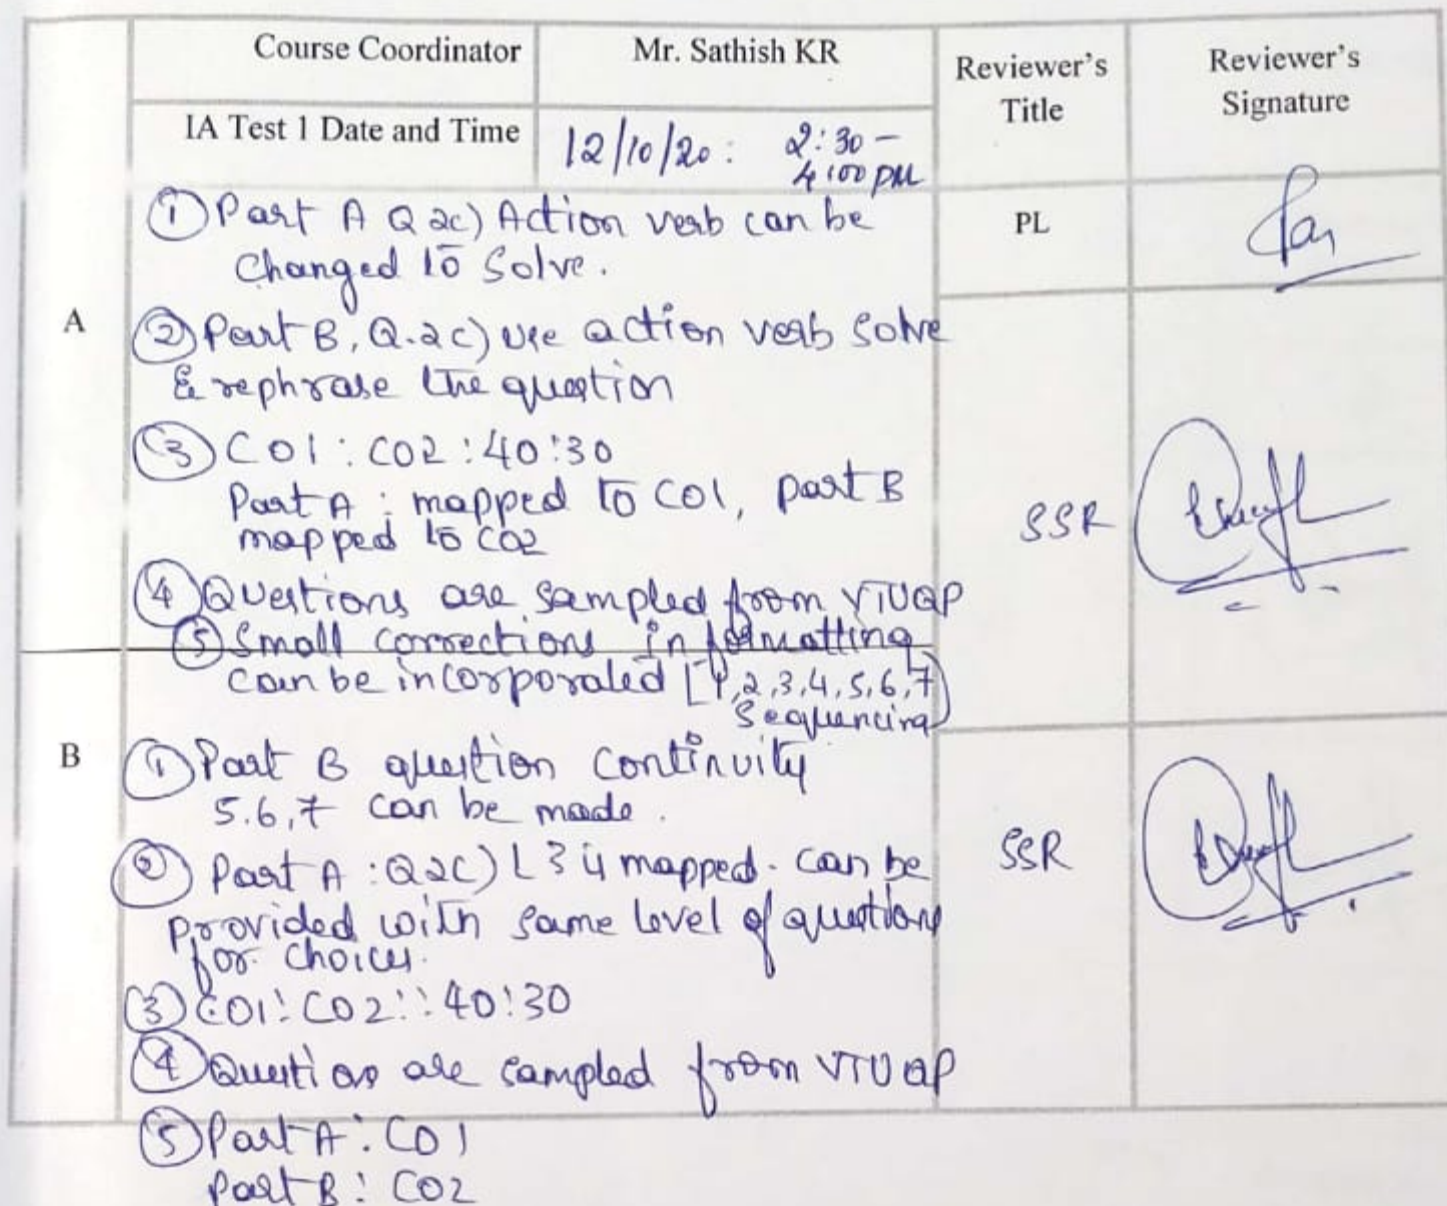 Course Coordinator
Mr. Sathish KR
Reviewer's
Title
Reviewer's
Signature
IA Test 1 Date and Time
12/10/20: 2:30 –
4:00 PM
A
① Part A Q 2c) Action verb can be
changed to Solve.
② Part B, Q.2c) use action verb solve
& rephrase the question
③ CO1 : CO2 : 40:30
Part A : mapped to CO1, part B
mapped to CO2
④ Questions are sampled from VTUQP
⑤ Small corrections in formatting
can be incorporated [1,2,3,4,5,6,7
Sequencing]
PL
SSR
B
① Part B question continuity
5.6,7 can be made.
② Part A : Q2c) L3 is mapped. Can be
provided with same level of questions
for choices.
③ CO1: CO2:: 40:30
④ Questions are sampled from VTU QP
⑤ Part A : CO1
Part B : CO2
SSR